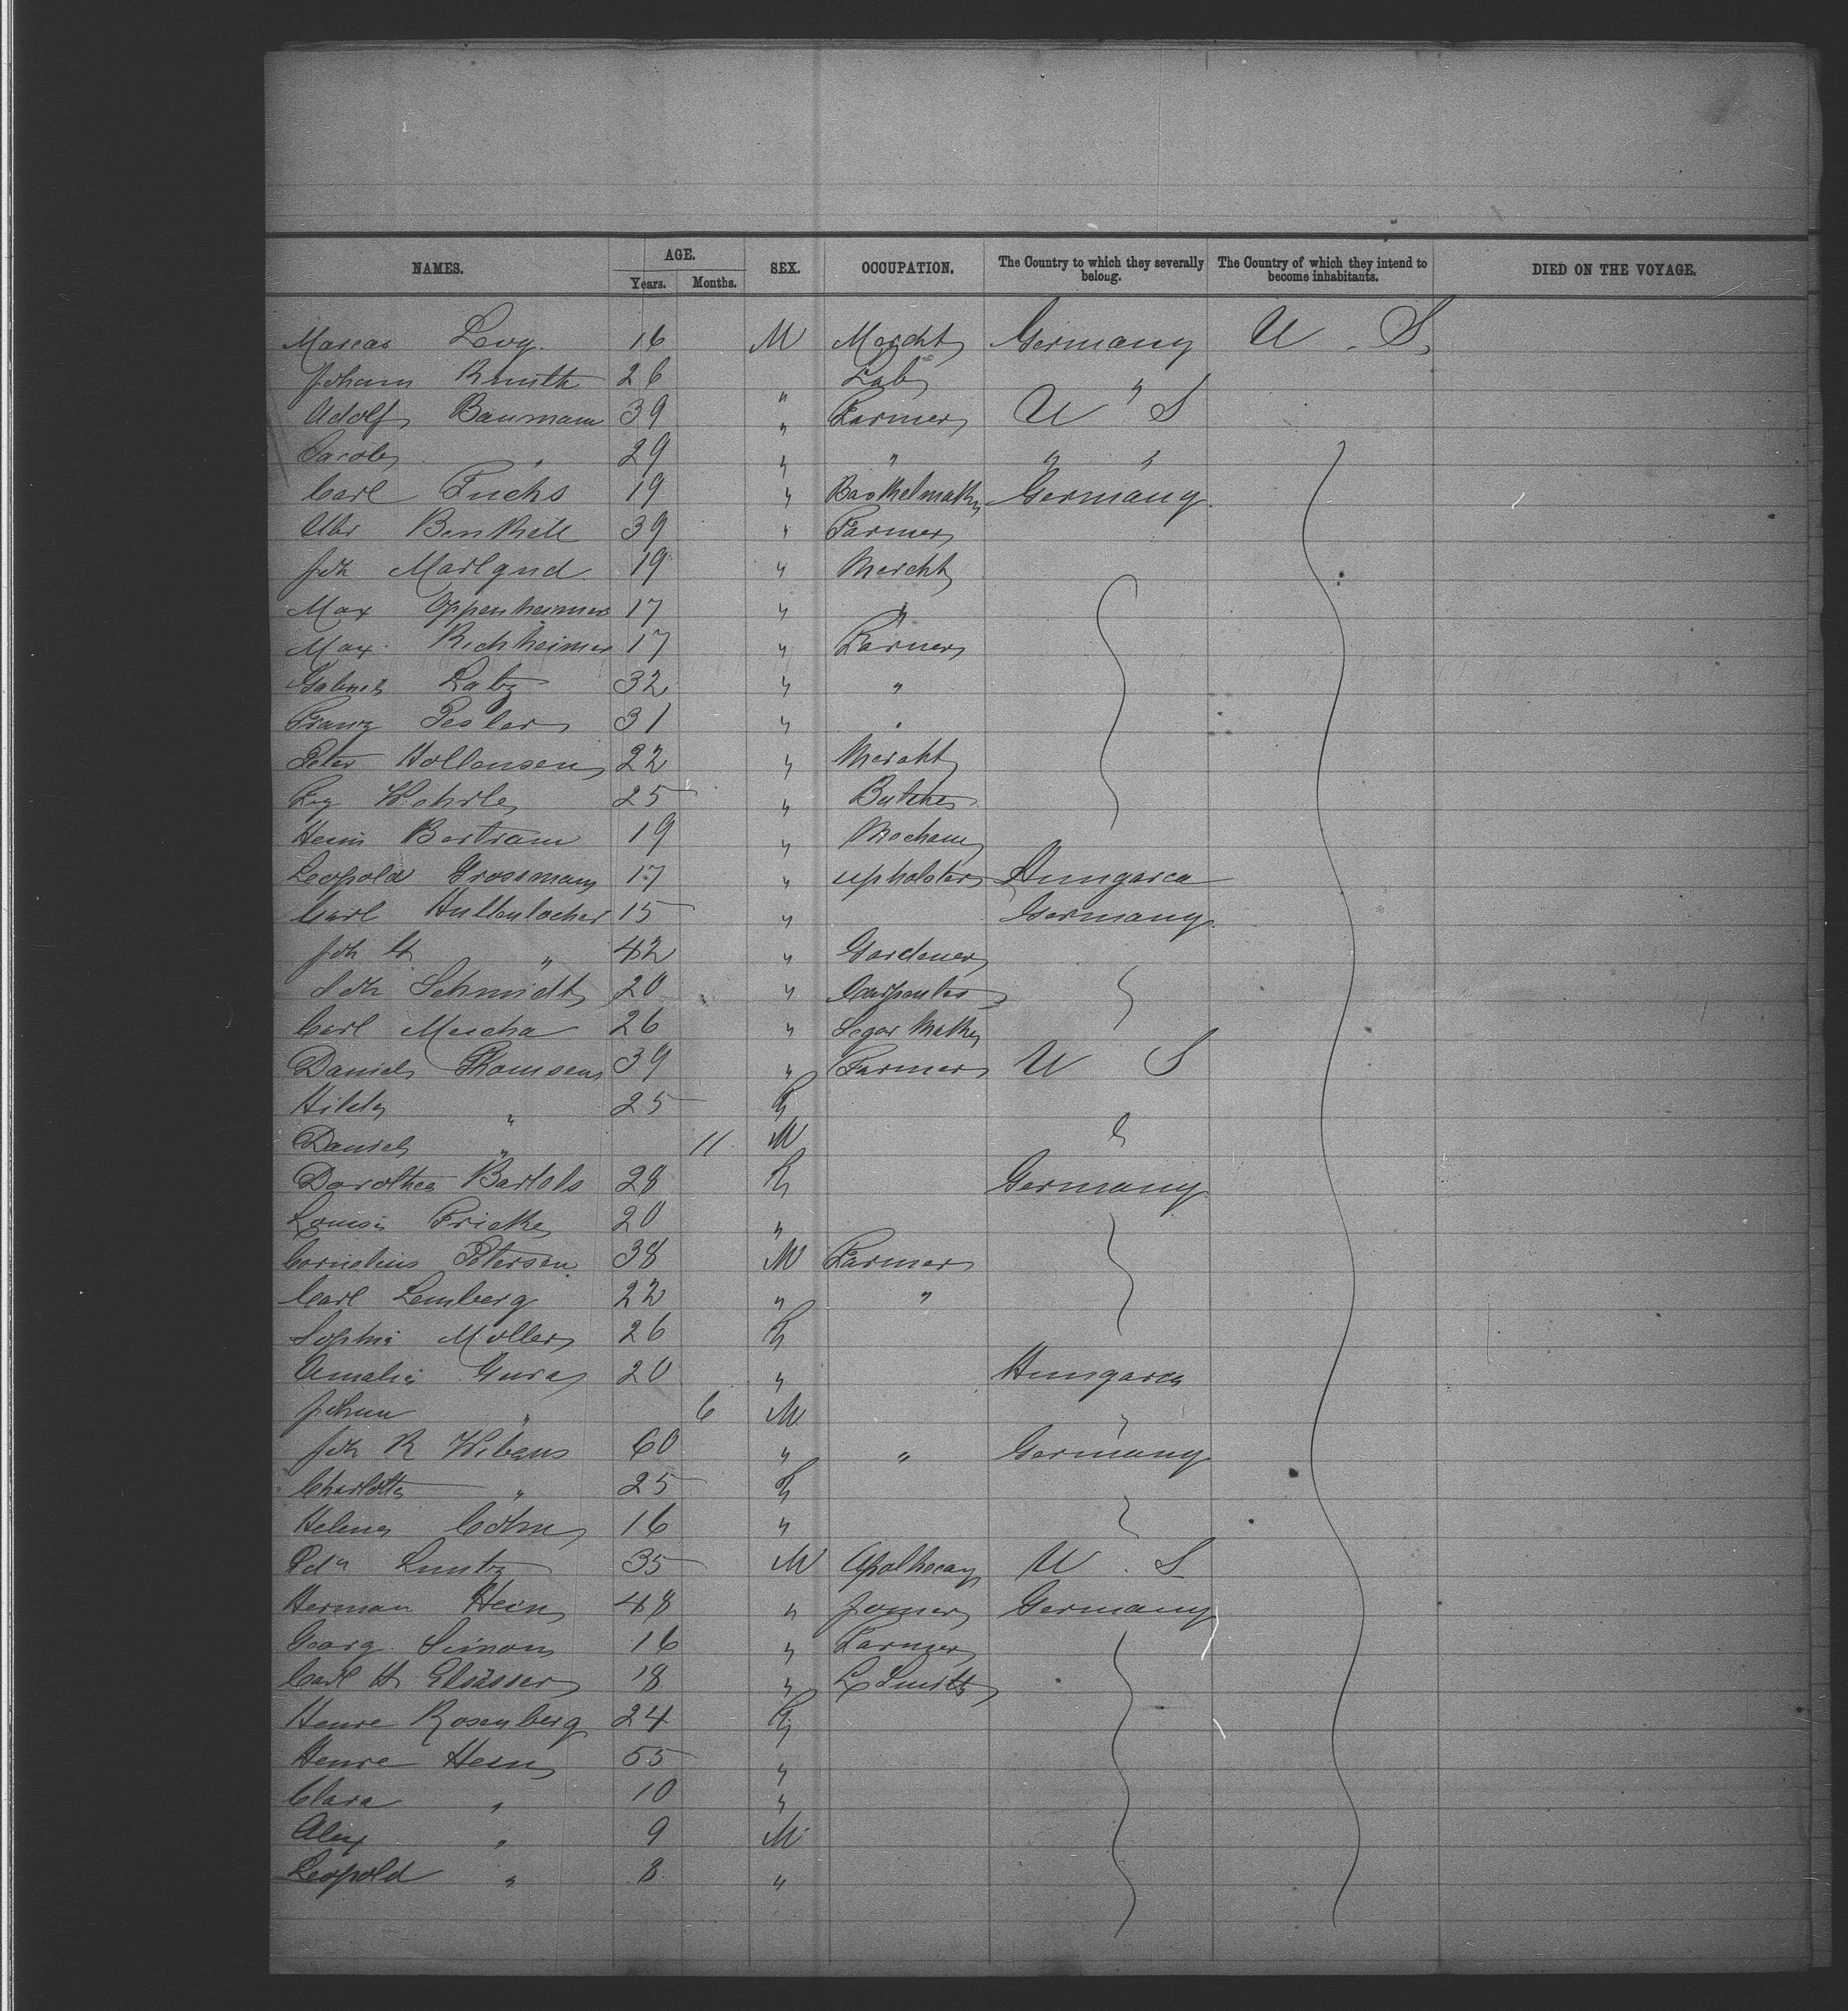 NAMES. AGE. SEX. OCCUPATION. The Country to which they severally belong. The Country of which they intend to become inhabitants. DIED ON THE VOYAGE.
Years. Months.
Marcus Levy 16 M Mercht Germany U. S.
Johann 26 Lab "
Adolf Baumann 39 " Farmer U S
Jacob " 29 " " " "
Carl Fuchs 19 " Germany
39 " Farmer
Joh 19 " Mercht
Max Oppenheimer 17 " "
Max Richheimer 17 " Farmer
Gabriel 32 " "
Franz 31 " "
Peter Hollensen 22 " Mercht
25 " Butcher
Bertram 19 " Mechan
Leopold Grossmann 17 " upholster Hungaria
Carl Huttenlocher 15 " Germany
Joh " 42 " Gardener
Joh Schmidt 20 " Carpenter
Carl 26 " Segar Maker
Daniel Thomsen 39 " Farmer U S
Hilda " 25 F
Daniel " 11 M
Dorothea Bartels 28 F Germany
Louise Fricke 20 "
Cornelius Petersen 38 M Farmer
Carl Lemberg 22 " "
Sophie Moller 26 F
Amalie 20 " Hungaria
Johan " 6 M "
Joh R 60 " " Germany
Charlotte " 25 F
Helena Cohn 16 "
35 M Apothecary U. S.
Herman Hein 48 " Joiner Germany
Georg Simon 16 " Farmer
Carl H Elsässer 18 "
Henre Rosenberg 24 F
Henre Hein 55 "
Clara " 10 "
Alex " 9 M
Leopold " 8 "